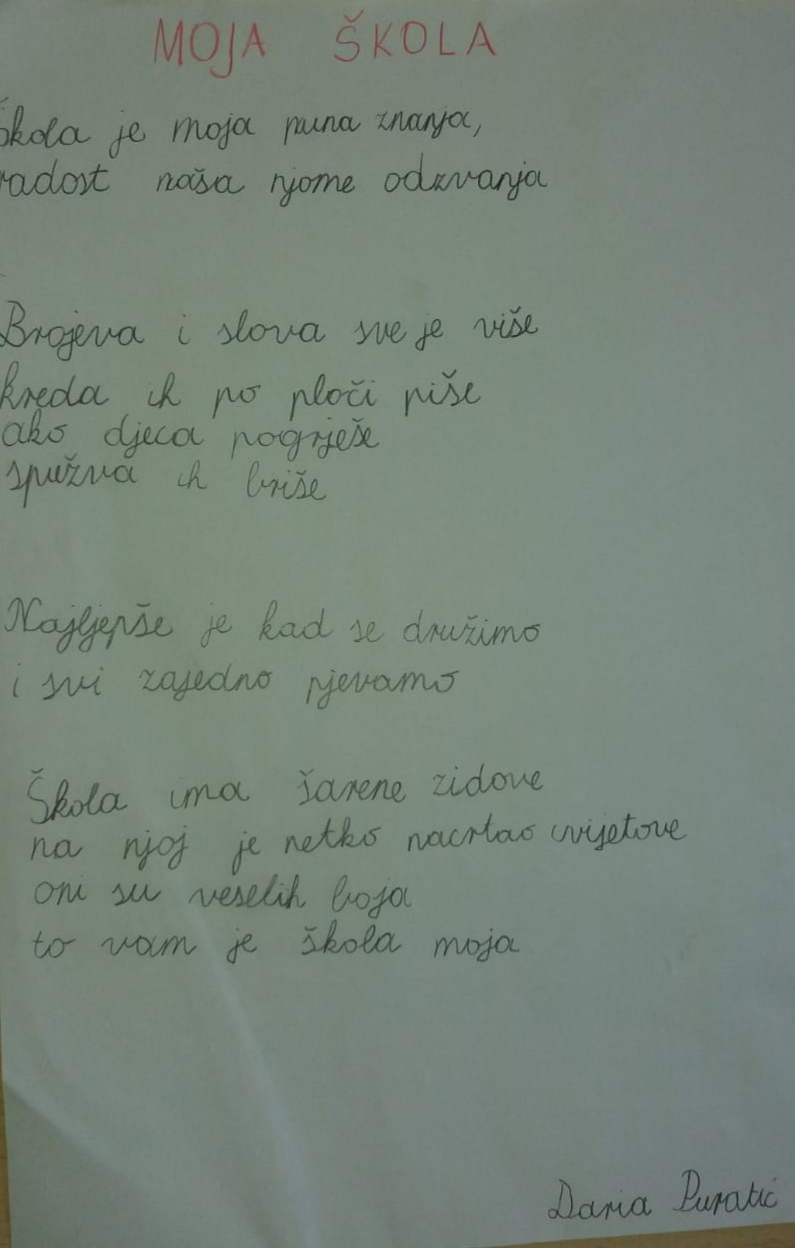 MOJA ŠKOLA
Škola je moja puna znanja,
radost naša njome odzvanja
Brojeva i slova sve je više
kreda ih po ploči piše
ako djeca pogriješe
spužva ih briše
Najljepše je kad se družimo
i svi zajedno pjevamo
Škola ima šarene zidove
na njoj je netko nacrtao cvijetove
oni su veselih boja
to vam je škola moja
Daria Puratić